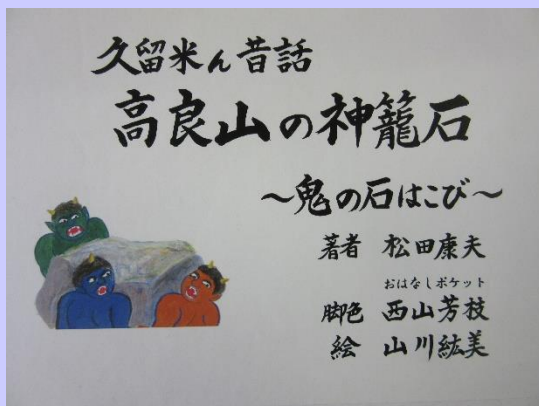 久留米ん昔話
高良山の神籠石
~鬼の石はこび~
著者 松田康夫
おはなしポケット
脚色 西山芳枝
絵 山川紘美